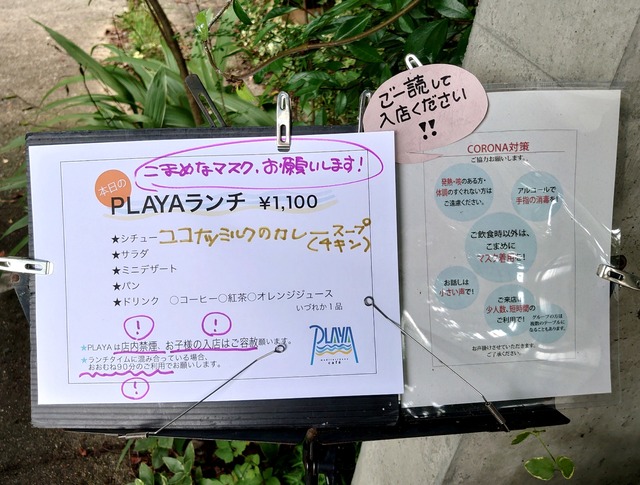 こまめなマスク、お願いします!
本日の
PLAYAランチ ¥1,100
★シチュー ココナッツミルクのカレースープ
(チキン)
★サラダ
★ミニデザート
★パン
★ドリンク 〇コーヒー〇紅茶〇オレンジジュース
いづれか1品
! !
★PLAYAは店内禁煙、お子様の入店はご容赦願います。
★ランチタイムに混み合っている場合、
おおむね90分のご利用でお願いします。
!
PLAYA
ご一読して
入店ください
!!
CORONA対策
ご協力お願いします。
発熱・咳のある方・
体調のすぐれない方は
ご遠慮ください。
アルコールで
手指の消毒を!
ご飲食時以外は、
こまめに
マスク着用を!
お話しは
小さい声で!
ご来店は
少人数、短時間の
ご利用で!
グループの方は
複数のテーブルに
なることもあります。
お声掛けさせていただきます。
ご了承ください。